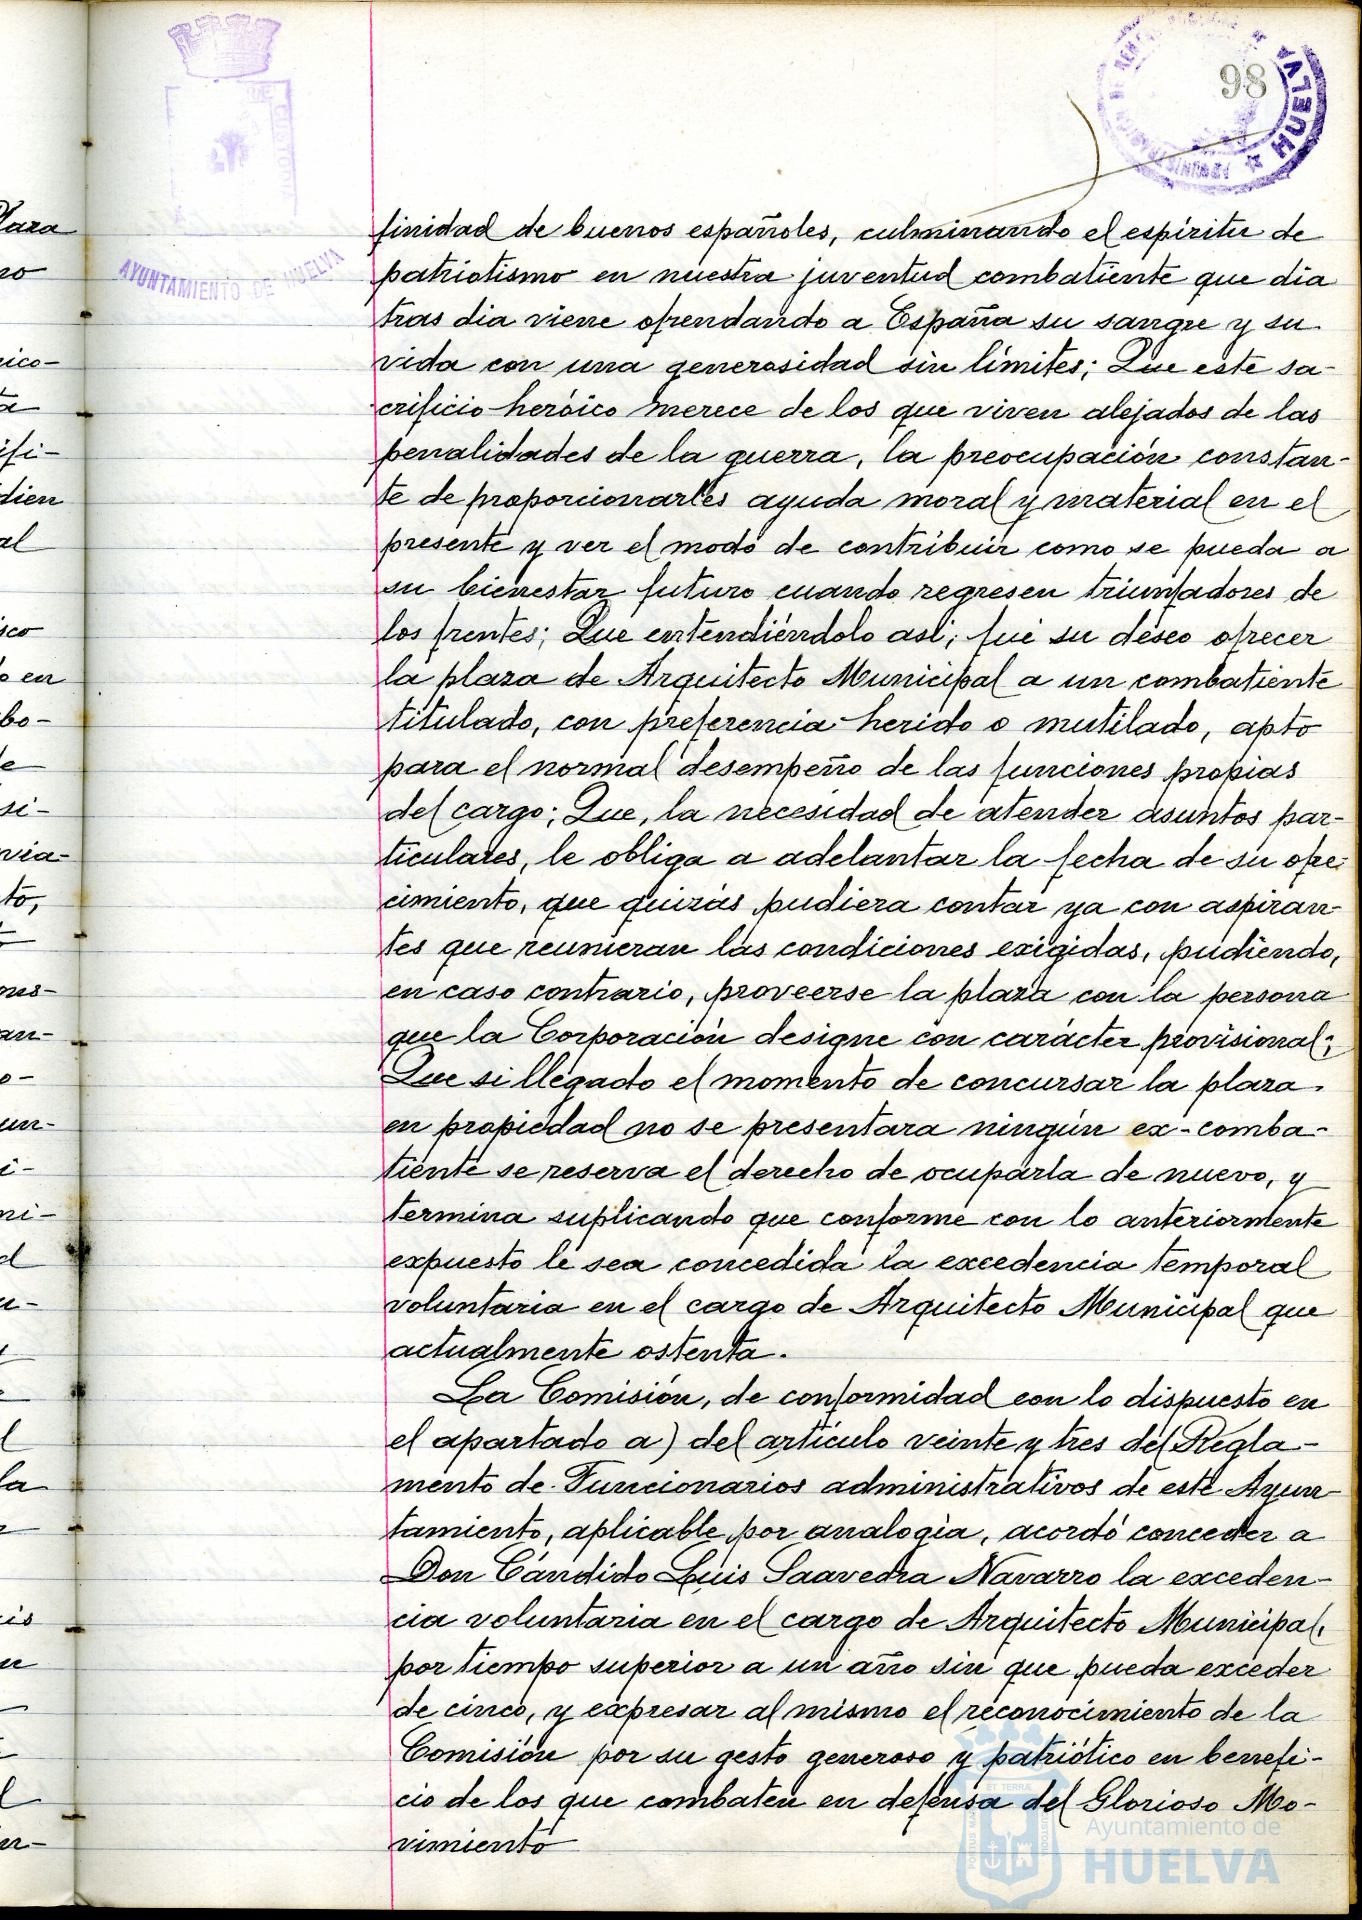 98
HUELVA
AYUNTAMIENTO DE HUELVA
finidad de buenos españoles, culminando el espíritu de
patriotismo en nuestra juventud combatiente que dia
tras dia viene ofrendando a España su sangre y su
vida con una generosidad sin límites; Que este sa-
crificio heróico merece de los que viven alejados de las
penalidades de la guerra, la preocupación constan-
te de proporcionarles ayuda moral y material en el
presente y ver el modo de contribuir como se pueda a
su bienestar futuro cuando regresen triunfadores de
los frentes; Que entendiéndolo asi, fué su deseo ofrecer
la plaza de Arquitecto Municipal a un combatiente
titulado, con preferencia herido o mutilado, apto
para el normal desempeño de las funciones propias
del cargo; Que, la necesidad de atender asuntos par-
ticulares, le obliga a adelantar la fecha de su ofre-
cimiento, que quizás pudiera contar ya con aspiran-
tes que reunieran las condiciones exigidas, pudiendo,
en caso contrario, proveerse la plaza con la persona
que la Corporación designe con carácter provisional;
Que si llegado el momento de concursar la plaza
en propiedad no se presentara ningún ex-comba-
tiente se reserva el derecho de ocuparla de nuevo, y
termina suplicando que conforme con lo anteriormente
expuesto le sea concedida la excedencia temporal
voluntaria en el cargo de Arquitecto Municipal que
actualmente ostenta.
La Comisión, de conformidad con lo dispuesto en
el apartado a) del artículo veinte y tres del Regla-
mento de Funcionarios administrativos de este Ayun-
tamiento, aplicable por analogía, acordó conceder a
Don Cándido Luis Saavedra Navarro la exceden-
cia voluntaria en el cargo de Arquitecto Municipal,
por tiempo superior a un año sin que pueda exceder
de cinco, y expresar al mismo el reconocimiento de la
Comisión por su gesto generoso y patriótico en benefi-
cio de los que combaten en defensa del Glorioso Mo-
vimiento
Ayuntamiento de
HUELVA